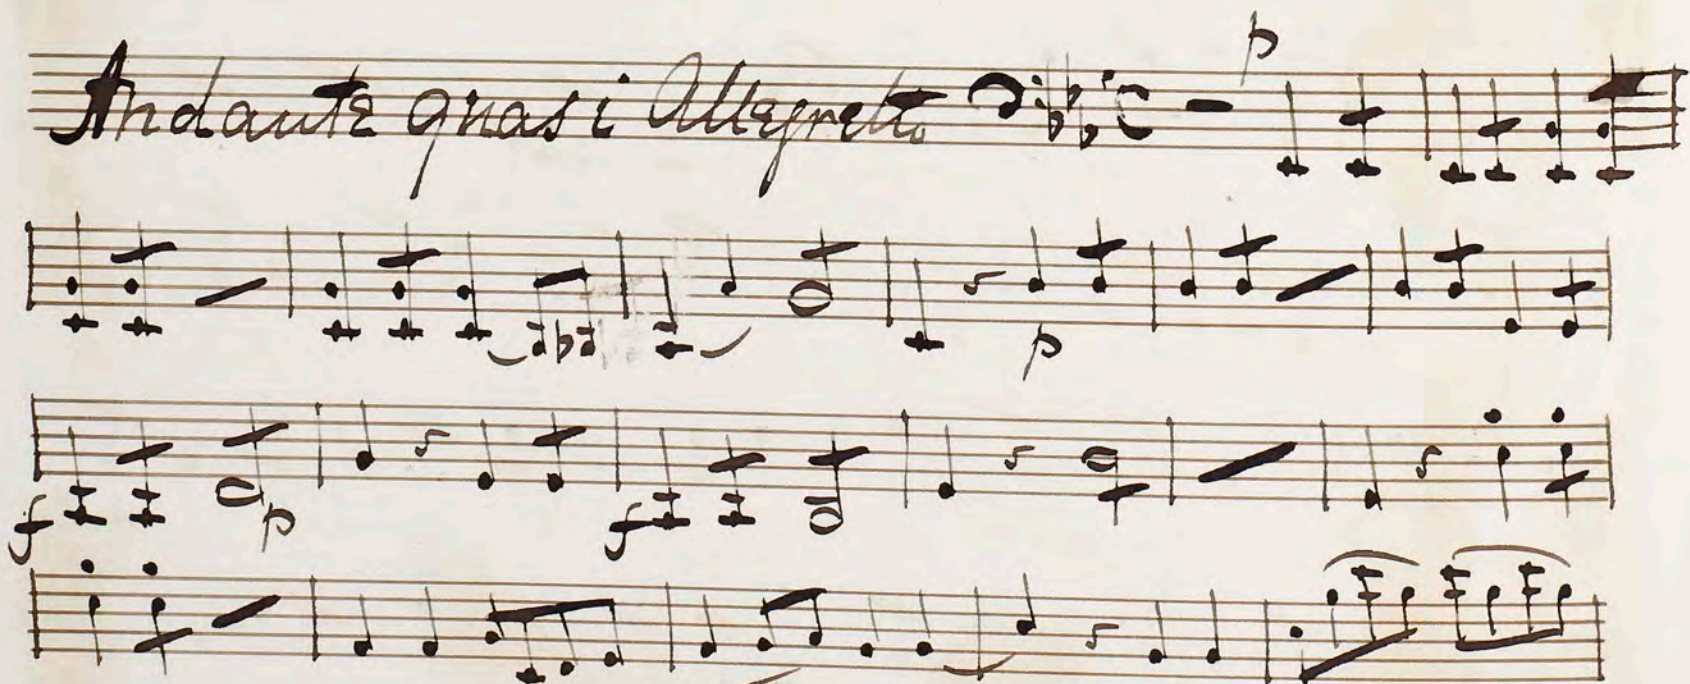 Andante quasi Allegretto p
p
f p f